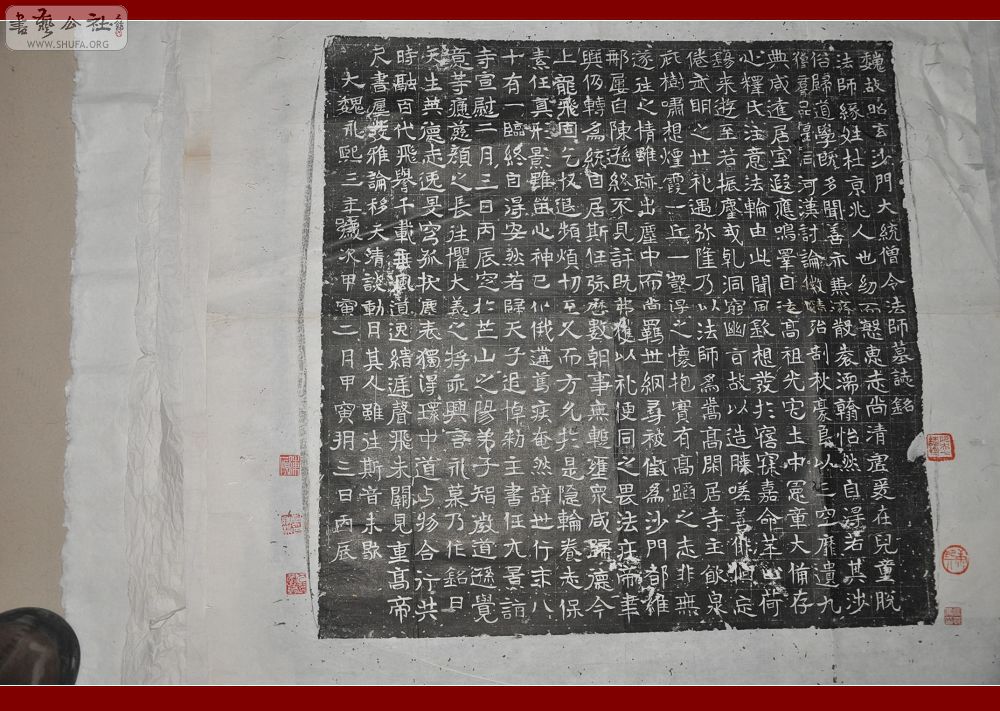 書藝公社
WWW.SHUFA.ORG
魏故昭玄沙門大統僧令法師墓誌銘
法師緣姓杜京兆人也幼而慜惠志尚清虛爰在兒童脫
俗歸道學既多聞善亦兼濟散袠濡翰怡然自得若其涉
獵群品富同河漢討論微賾殆剖秋豪良以三空靡遺九
典咸達居室遐應鳴皋自遠高祖光宅土中冠童大備存
心釋氏注意法輪由此聞風欽想發於寤寐嘉命萃止荷
錫來遊至若振麈或乾洞窮幽旨故以造膝嗟善徘徊忘
倦武明之世礼遇弥隆乃以法師為嵩高閑居寺主飲泉
庇樹嘯想煙霞一丘一壑得之懷抱實有高蹈之志非無
遂往之情雖跡出塵中而尚羈世網尋被徵為沙門都維
那屢自陳遜終不見許既弗獲以礼便同之畏法莊帝聿
興仍轉為統自居斯任弥歷數朝事無暫壅衆咸歸德今
上龍飛固乞收退頻煩切至久而方允於是隱輪養志保
素任真形影雖留心神已化俄遘篤疾奄然辞世行年八
十有一臨終自得安然若歸天子追悼勑主書任元景詣
寺宣慰二月三日丙辰窆於芒山之陽弟子智徵道遜覺
意等痛慈顏之長往懼大義之將乖興言永慕乃作銘曰
天生懿德志逸旻穹孤秋塵表獨得環中道与物合行共
時融百代飛譽千載垂風道逸緇涯聲飛朱闕見重高帝
尺書屢發雅論移天清談動月其人雖往斯音未歇
大魏永熙三年歲次甲寅二月甲寅朔三日丙辰